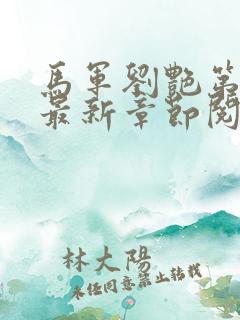 馬軍劉艷第
最新章節閱
林大陽
未經同意禁止轉載